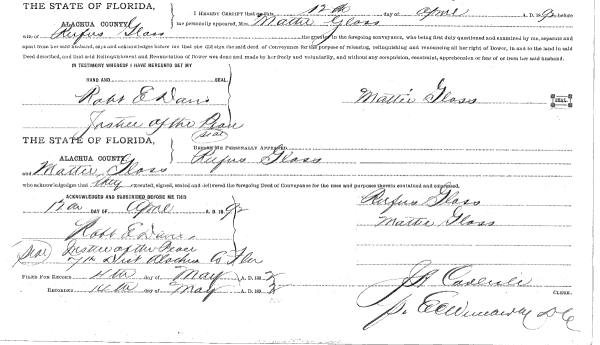 THE STATE OF FLORIDA,
ALACHUA COUNTY.
I HEREBY CERTIFY that on this 12th day of April A. D. 1892 before
me personally appeared, Mrs. Mattie Glass
wife of Rufus Glass the grantor in the foregoing conveyance, who being first duly questioned and examined by me, separate and
apart from her said husband, says and acknowledges before me that she did sign the said deed of Conveyance for the purpose of releasing, relinquishing and renouncing all her right of Dower, in and to the land in said
Deed described, and that said Relinquishment and Renunciation of Dower was made by her freely and voluntarily, and without any compulsion, constraint, apprehension or fear of or from her said husband.
IN TESTIMONY WHEREOF I HAVE HEREUNTO SET MY
HAND AND SEAL.
Robt E Davis Mattie Glass SEAL.
Justice of the Peace
Seal
THE STATE OF FLORIDA,
ALACHUA COUNTY.
BEFORE ME PERSONALLY APPEARED
Rufus Glass
and Mattie Glass
who acknowledges that they executed, signed, sealed and delivered the foregoing Deed of Conveyance for the uses and purposes therein contained and expressed.
ACKNOWLEDGED AND SUBSCRIBED BEFORE ME THIS
12th DAY OF April A. D. 1892
Rufus Glass
Mattie Glass
Robt E Davis
Seal Justice of the Peace
Dist Alachua Co Fla
FILED FOR RECORD 4th day of May A. D. 1892
RECORDED 14th day of May A. D. 1892
J A Carlisle CLERK.
D C